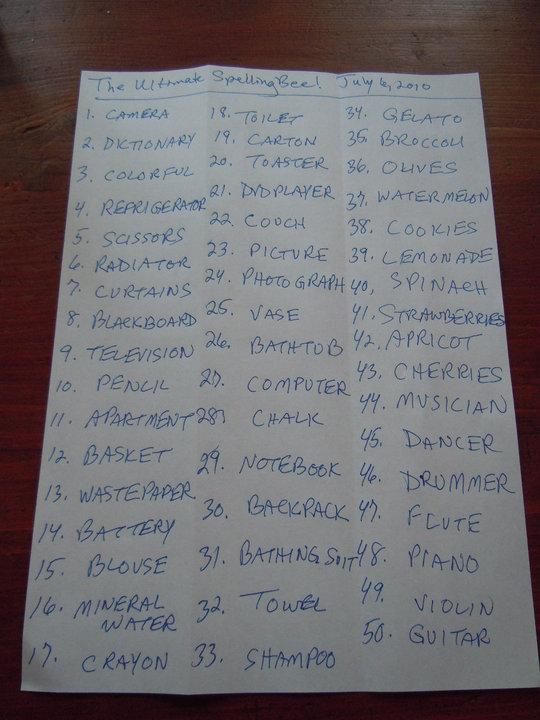 The Ultimate Spelling Bee! July 6, 2010
1. CAMERA
2. DICTIONARY
3. COLORFUL
4. REFRIGERATOR
5. SCISSORS
6. RADIATOR
7. CURTAINS
8. BLACKBOARD
9. TELEVISION
10. PENCIL
11. APARTMENT
12. BASKET
13. WASTEPAPER
14. BATTERY
15. BLOUSE
16. MINERAL
WATER
17. CRAYON
18. TOILET
19. CARTON
20. TOASTER
21. DVD PLAYER
22. COUCH
23. PICTURE
24. PHOTOGRAPH
25. VASE
26. BATHTUB
27. COMPUTER
28. CHALK
29. NOTEBOOK
30. BACKPACK
31. BATHING SUIT
32. TOWEL
33. SHAMPOO
34. GELATO
35. BROCCOLI
36. OLIVES
37. WATERMELON
38. COOKIES
39. LEMONADE
40. SPINACH
41. STRAWBERRIES
42. APRICOT
43. CHERRIES
44. MUSICIAN
45. DANCER
46. DRUMMER
47. FLUTE
48. PIANO
49. VIOLIN
50. GUITAR